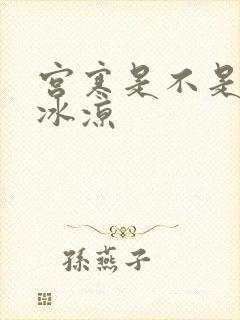 宫寒是不是
冰凉
孫燕子